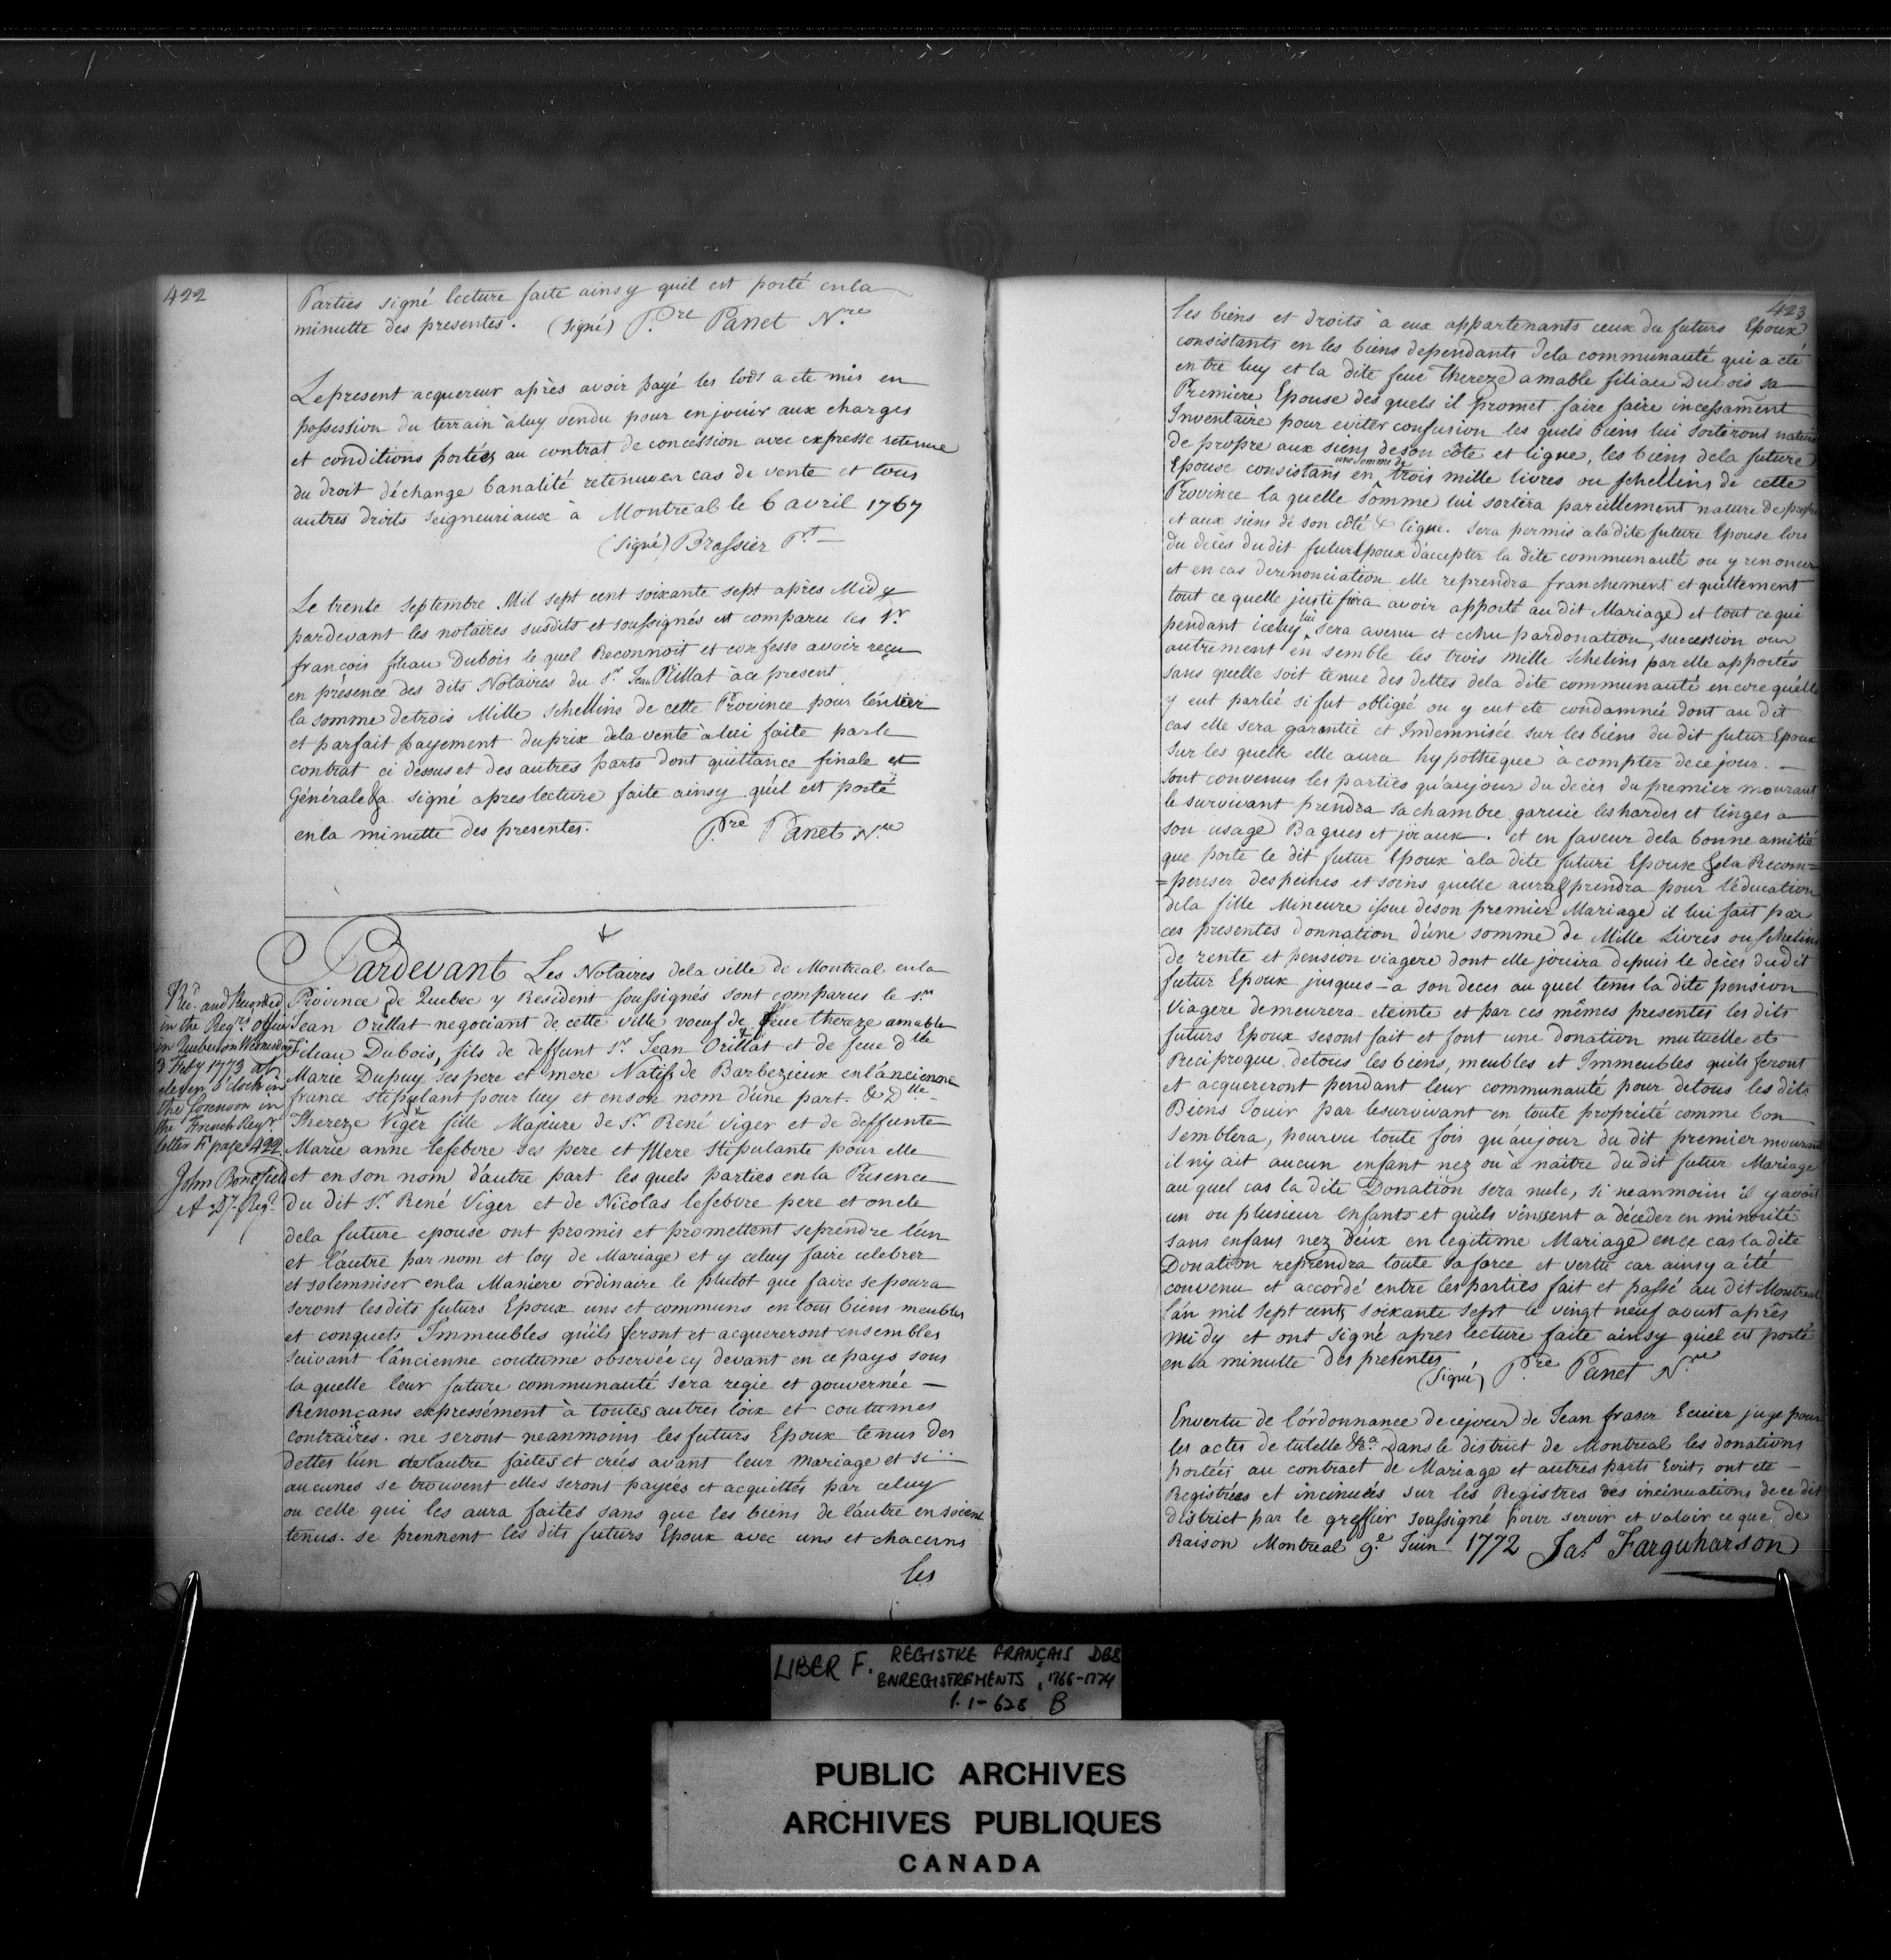 422
Parties signé lecture faite ainsy quil est porté en la
minutte des presentes. (Signé) P.re Panet N.re
Le present acquereur après avoir payé les lods a ete mis en
possession du terrain à luy vendu pour en jouir aux charges
et conditions portées au contrat de concéssion avec expresse retenue
du droit déchange banalité retenue en cas de vente et tous
autres droits seigneuriaux à Montreal le 6 avril 1767
(Signé) Brassier P.rt
Le trente Septembre Mil sept cent soixante sept après Midy
pardevant les notaires susdits et soussignés est comparu les S.r
françois fileau Dubois le quel Reconnoit et confesse avoir reçu
en présence des dits Notaires du S.r Jean Orillat à ce present
la somme de trois Mille schellins de cette Province pour l'éntier
et parfait payement du prix de la vente à lui faite par le
contrat ci dessus et des autres parts dont quittance finale et
Générale & a signé apres lecture faite ainsy qúil est porté
en la minutte des presentes. P.re Panet N.re
Pardevant Les Notaires de la ville de Montreal en la
Province de Quebec y Resident soussignés sont comparus le s.r
Jean Orillat negociant de cette ville voeuf de feue thereze amable
Filiau Dubois, fils de deffunt S.r Jean Orillat et de feue d.lle
Marie Dupuy ses pere et mere Natifs de Barbezieux en l'áncienne
france stipulant pour luy et en son nom d'úne part. & D.lle
Thereze Viger fille Majeure de S.r René Viger et de deffunte
Marie anne lefebvre ses pere et Mere stipulante pour elle
et en son nom d'áutre part les quels parties en la Presence
du dit S.r René Viger et de Nicolas lefebvre pere et oncle
de la future epouse ont promis et promettent se prendre l'ún
et l'áutre par nom et loy de Mariage et y celuy faire celebrer
et solemniser en la Maniere ordinaire le plutot que faire se poura
seront les dits futurs Epoux uns et communs en tous biens meubles
et conquets Immeubles qúils feront et acquereront ensembles
suivant l'áncienne coutume observée cy devant en ce pays sous
la quelle leur future communauté sera regie et gouvernée —
Renonçans expressément à toutes autres loix et coutumes
contraires. ne seront neanmoins les futurs Epoux tenus des
dettes l'ún de l'autre faites et crées avant leur mariage et si
aucunes se trouvent elles seront payées et acquittés par celuy
ou celle qui les aura faites sans que les biens de l'áutre en soient
tenus. se prennent les dits futurs Epoux avec uns et chacuns
les
Rec.d and Recorded
in the Reg.rs office
in Quebec on Wednesday
3 Feby 1773 at
eleven o'Clock in
the forenoon in
the French Reg.r
letter F. page 422.
John Bonefield
A. Dy. Reg.r
423
les biens et droits à eux appartenants ceux du futurs Epoux
consistants en les biens dependants de la communauté qui a été
entre luy et la dite feue thereze amable filiau Dubois sa
Premiere Epouse des quels il promet faire faire incessament
Inventaire pour eviter confusion les quels biens lui sortiront nature
de propre aux siens de son côté et ligne, les biens de la future
Epouse consistans en une somme de trois mille livres ou schellins de cette
Province la quelle somme lui sortira pareillement nature de propre
et aux siens de son côté & ligne. Sera permis a la dite future Epouse lors
du décès du dit futur Epoux d'accepter la dite communauté ou y renoncer
et en cas de renonciation elle reprendra franchement et quittement
tout ce quelle justifira avoir apporté au dit Mariage et tout ce qui
pendant iceluy lui sera avenu et echu par donation, succession ou
autrement en semble les trois mille Schelins par elle apportés
sans quelle soit tenue des dettes de la dite communauté encore qúelle
y eut parlée si fut obligée ou y eut ete condamnée dont au dit
cas elle sera garantie et Indemnisée sur les biens du dit futur Epoux
sur les quelle elle aura hypotheque à compter de ce jour. —
sont convenus les parties qu'aujour du decès du premier mourant
le survivant prendra sa chambre garnie les hardes et linges a
son usage Bagues et joiaux. et en faveur de la bonne amitié
que porte le dit futur Epoux à la dite future Epouse & de la Recom=
=penser des peines et soins quelle aura & prendra pour l'éducation
de la fille Mineure issue de son premier Mariage il lui fait par
ces presentes donnation d'úne somme de Mille Livres ou Schelins
de rente et pension viagere dont elle jouira depuis le décès du dit
futur Epoux jusques à son deces au quel tems la dite pension
Viagere demeurera eteinte et par ces mêmes presentes les dits
futurs Epoux se sont fait et font une donation mutuelle et
Reciproque de tous les biens, meubles et Immeubles quils feront
et acquereront pendant leur communauté pour de tous les dits
Biens Jouir par le survivant en toute propriété comme bon
semblera, pourvu toute fois qu'áujour du dit premier mourant
il n'y ait aucun enfant nez ou à naitre du dit futur Mariage
au quel cas la dite Donation sera nule, si neanmoins il y avoit
un ou plusieur enfants et qúils vinssent a décéder en minorité
sans enfans nez d'éux en legitime Mariage en ce cas la dite
Donation reprendra toute sa force et vertu car ainsy a été
convenu et accordé entre les parties fait et passé au dit Montreal
l'án mil sept cents soixante sept le vingt neuf aoust après
midy et ont signé apres lecture faite ainsy qúel est porté
en la minutte des presentes
(Signé) P.re Panet N.re
En vertu de l'órdonnance de ce jour de Jean fraser Ecuier juge pour
les actes de tutelle &c.a Dans le district de Montreal les donations
portées au contract de Mariage et autres parts Ecrit, ont ete —
Registrées et incinuées sur les Registres des incinuations de ce dit
district par le greffier soussigné pour servir et valoir ce que de
Raison Montreal 9.e Juin 1772 Ja.s Farquharson
LIBER F. REGISTRE FRANÇAIS DES
ENREGISTREMENTS, 1766-1774
P. 1-628 B
PUBLIC ARCHIVES
ARCHIVES PUBLIQUES
CANADA